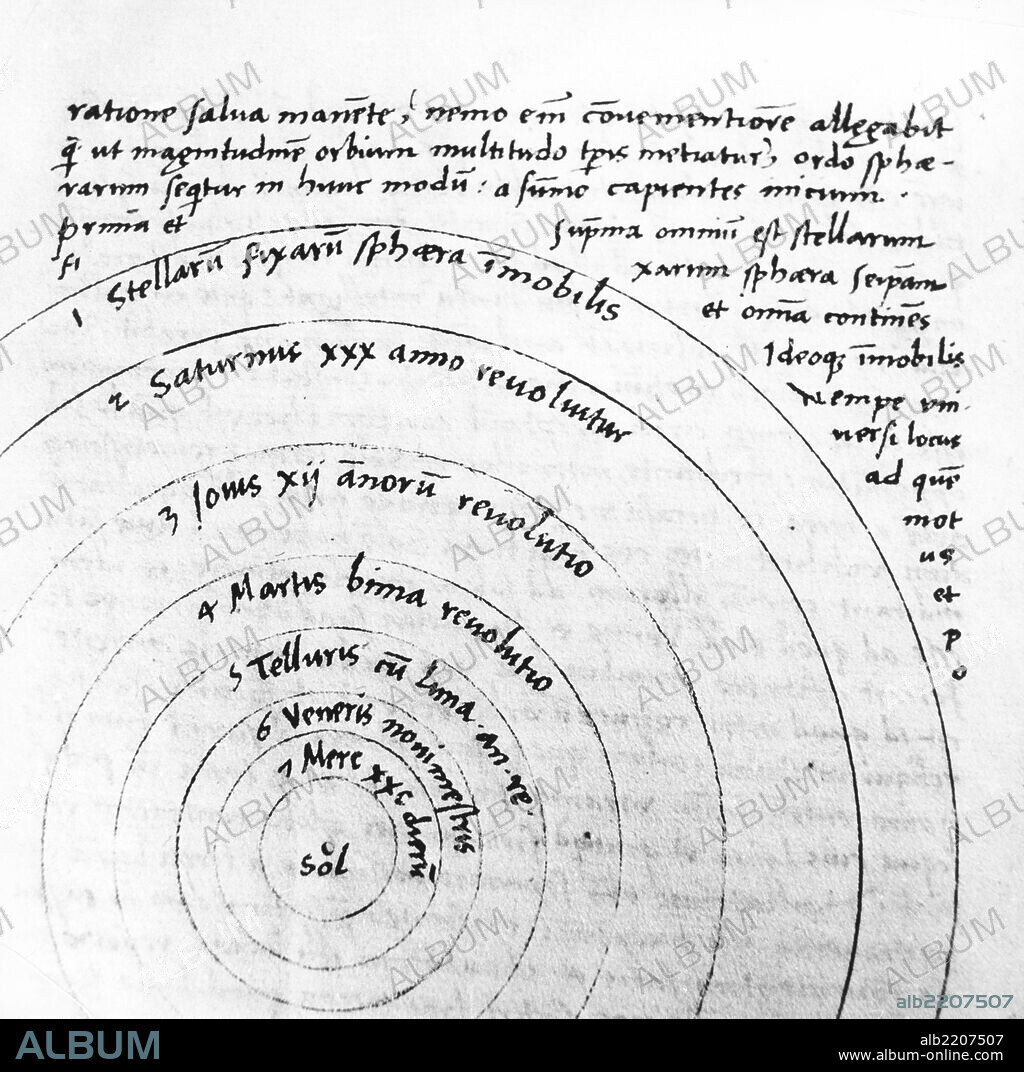 ratione salva manēte, nemo em̄ cōvenientiorē allegabit
q̄ ut magnitudinē orbium multitudo tp̄is metiatur, ordo sphæ-
rarum seq̄tur in hunc modū: a sūmo capientes inicium.
prima et suprema omniū est stellarum
fi xarum sphæra seip̄am
et omīa continēs
Ideoqꝫ īmobilis
Nempe vni-
versi locus
ad quē
mot
us
et
p
o
1 Stellarū fixarū sphæra īmobilis
2 Saturnus xxx anno revoluitur
3 Jovis xij ānorū revolutio
4 Martis bima revolutio
5 Telluris cū luna. an. re.
6 Veneris nonimestris
7 Merc xxc dierū
Sol
ALBUM
alb2207507
ALBUM
alb2207507
www.album-online.com